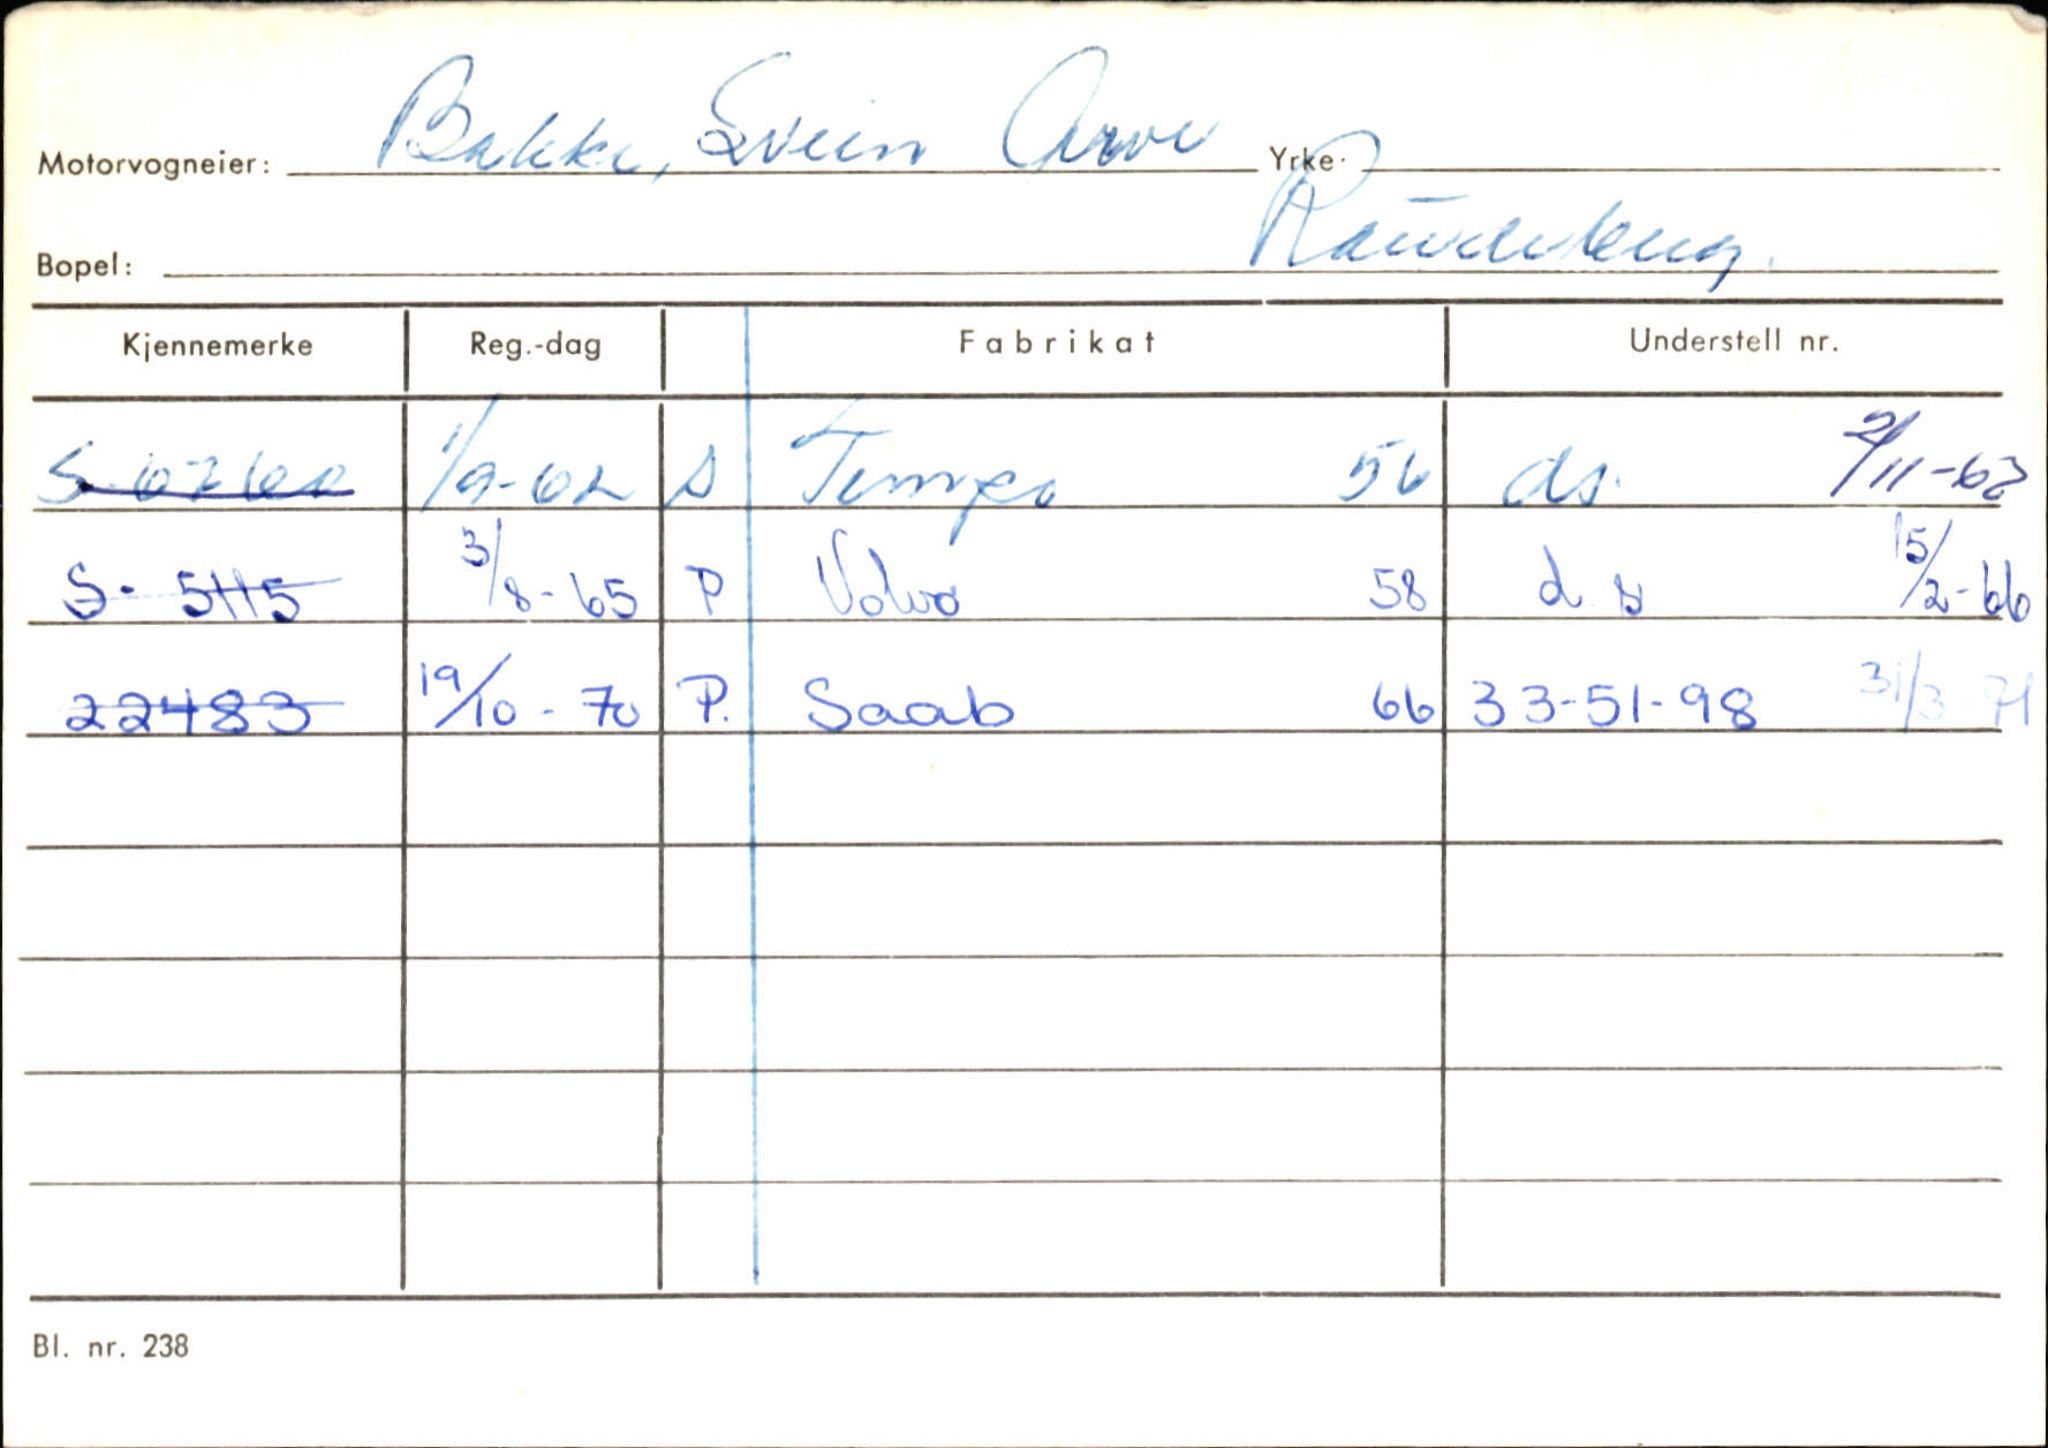 Motorvogneier: Bakke, Svein Arve Yrke.
Bopel: Raudeberg.
Kjennemerke Reg.-dag Fabrikat Understell nr.
1/9-62 S Tempo 56 ds. 2/11-62
S- 5115 3/8-65 P Volvo 58 d s 15/2-66
22483 19/10-70 P. Saab 66 33-51-98 31/3-71
Bl. nr. 238